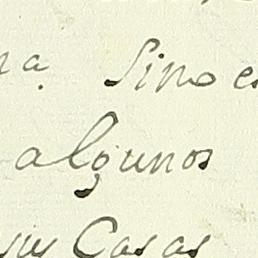 na. Sino es
algunos
sus Casas